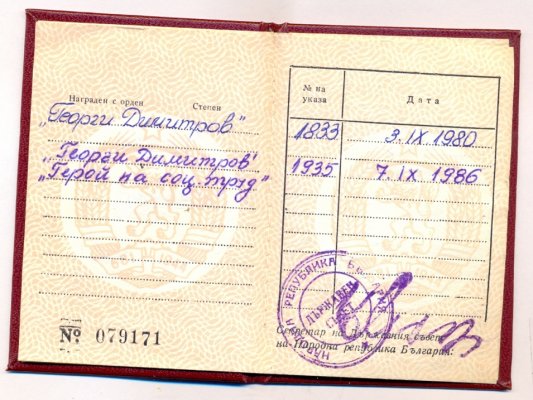 Награден с орден Степен
„Георги Димитров"
„Георги Димитров"
„Герой на соц. труд"
№ 079171
№ на указа Дата
1833 3. IX 1980
1935 7 IX 1986
НАРОДНА РЕПУБЛИКА БЪЛГАРИЯ
ДЪРЖАВЕН СЪВЕТ
Секретар на Държавния съвет
на Народна република България: